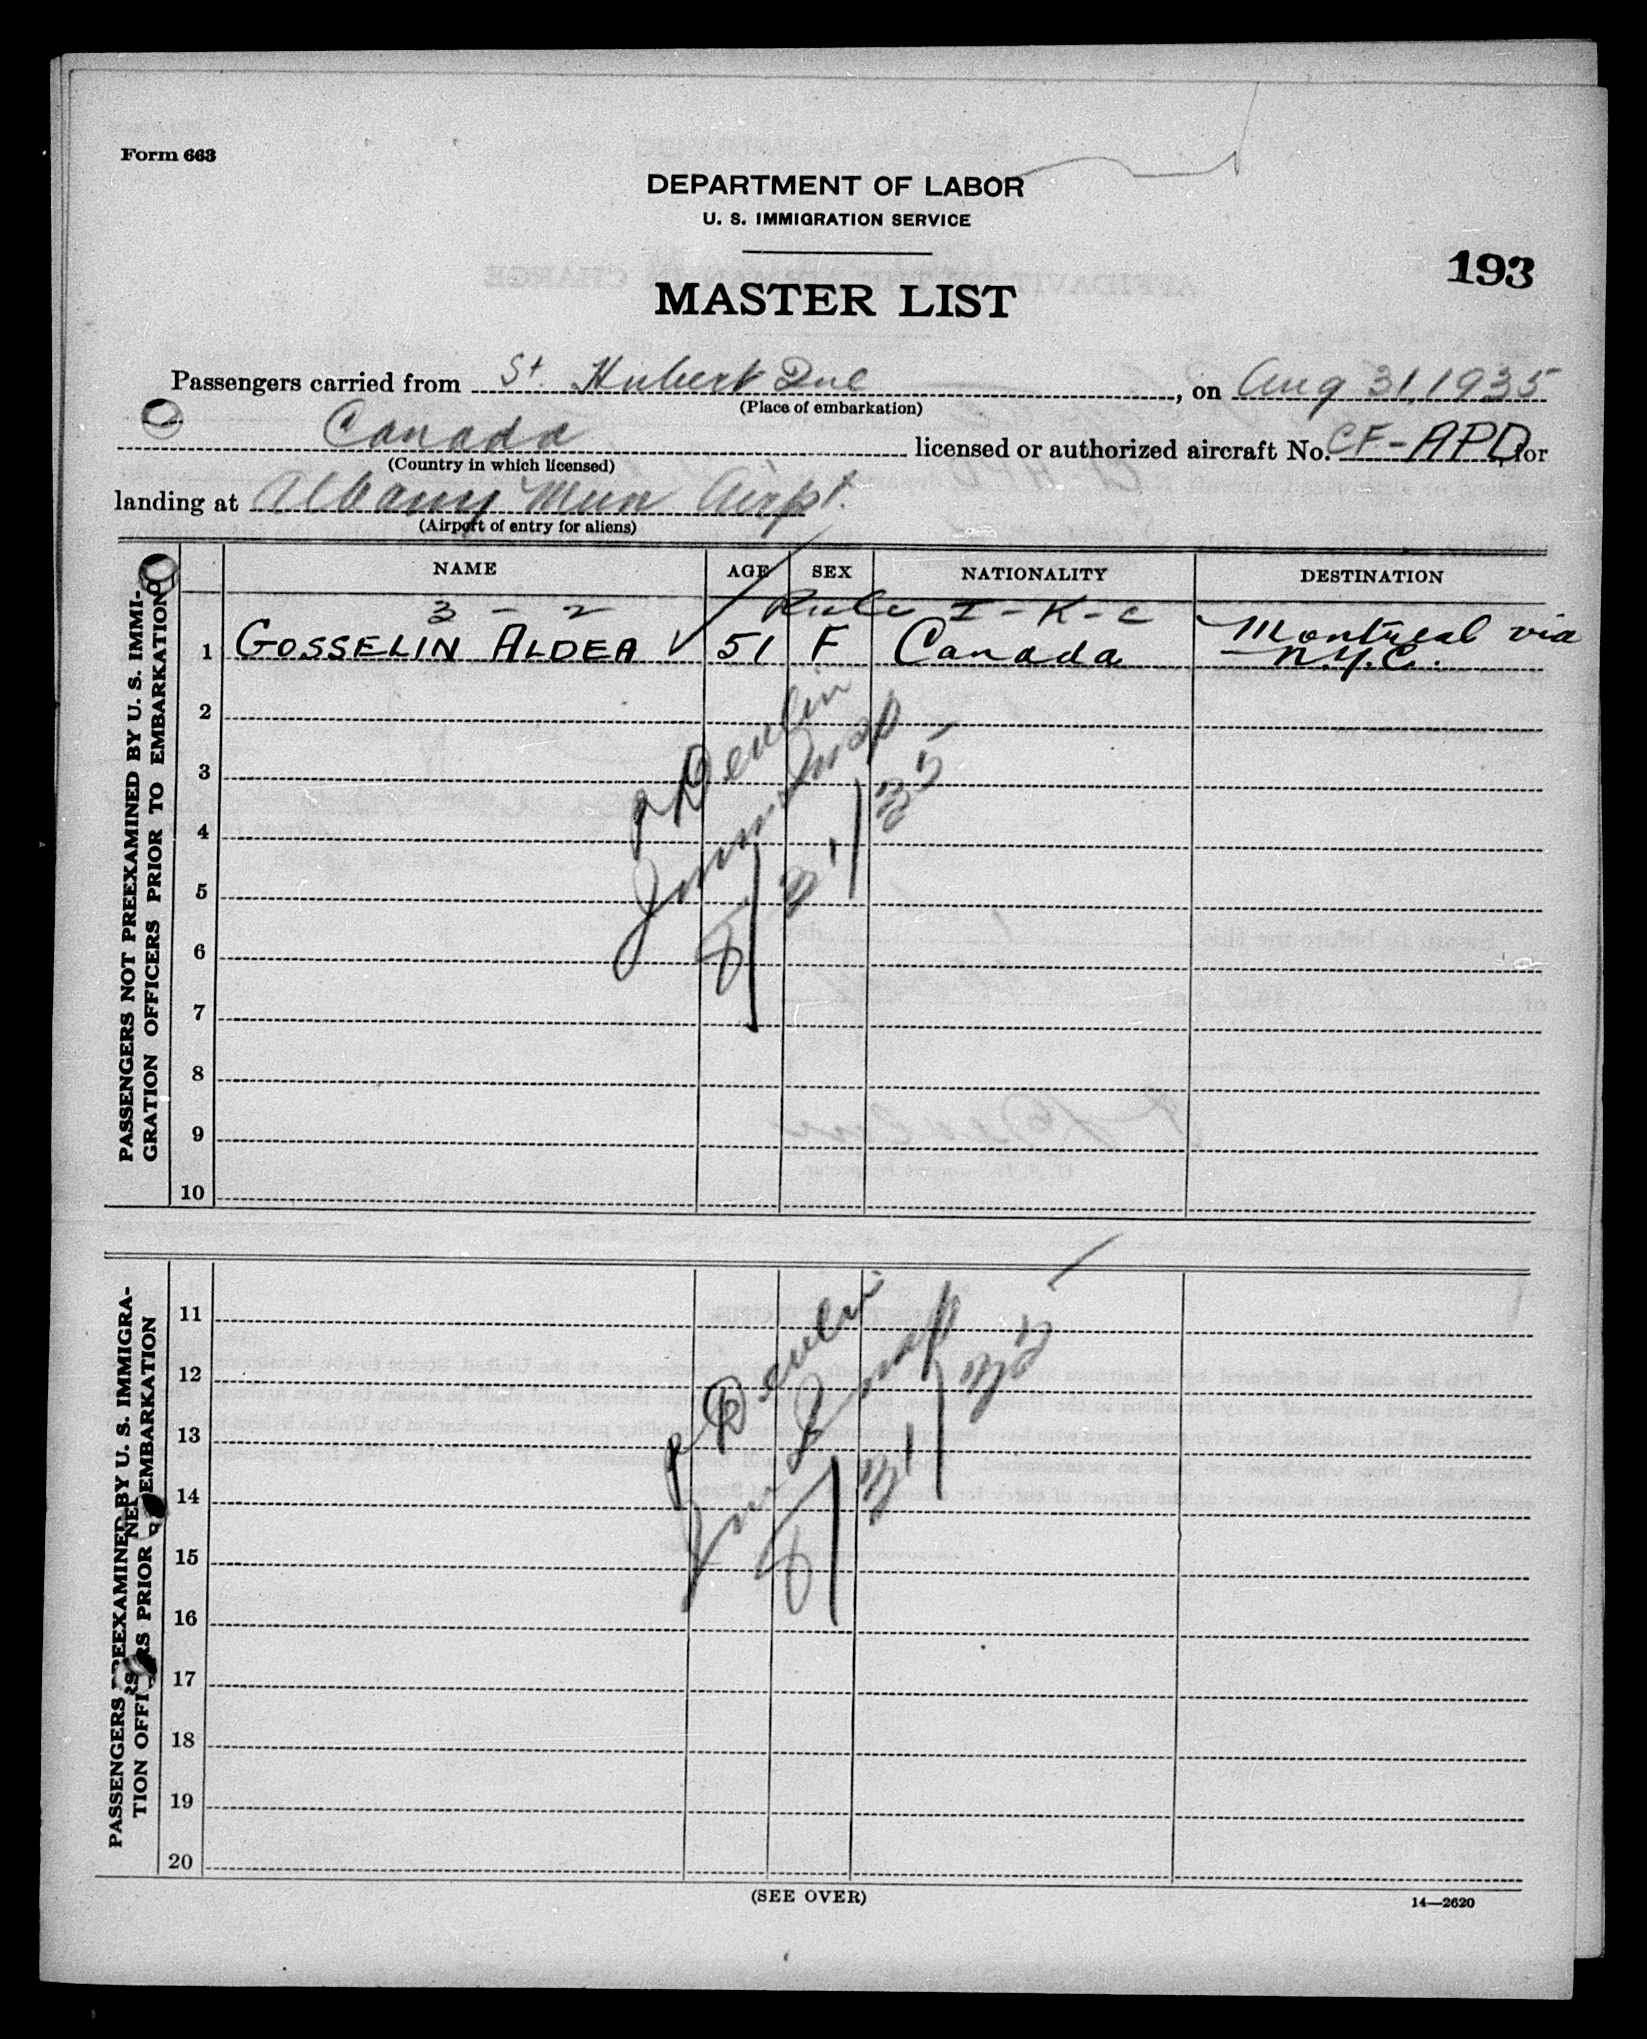 Form 663
DEPARTMENT OF LABOR
U. S. IMMIGRATION SERVICE
193
MASTER LIST
Passengers carried from St. Hubert Que, on Aug 31, 1935
(Place of embarkation)
Canada licensed or authorized aircraft No. CF-APD, for
(Country in which licensed)
landing at Albany Mun Airpt.
(Airport of entry for aliens)
PASSENGERS NOT PREEXAMINED BY U. S. IMMI-
GRATION OFFICERS PRIOR TO EMBARKATION
NAME AGE SEX NATIONALITY DESTINATION
3 - 2 Rule I-K-C
1 GOSSELIN ALDEA ✓ 51 F Canada Montreal via
N.Y.C.
2
3
4
5
6
7
8
9
10
Devlin
Immig Insp
8/31/35
PASSENGERS PREEXAMINED BY U. S. IMMIGRA-
TION OFFICERS PRIOR EMBARKATION
11
12
13
14
15
16
17
18
19
20
Devlin
Insp
8/31/35
(SEE OVER)
14—2620